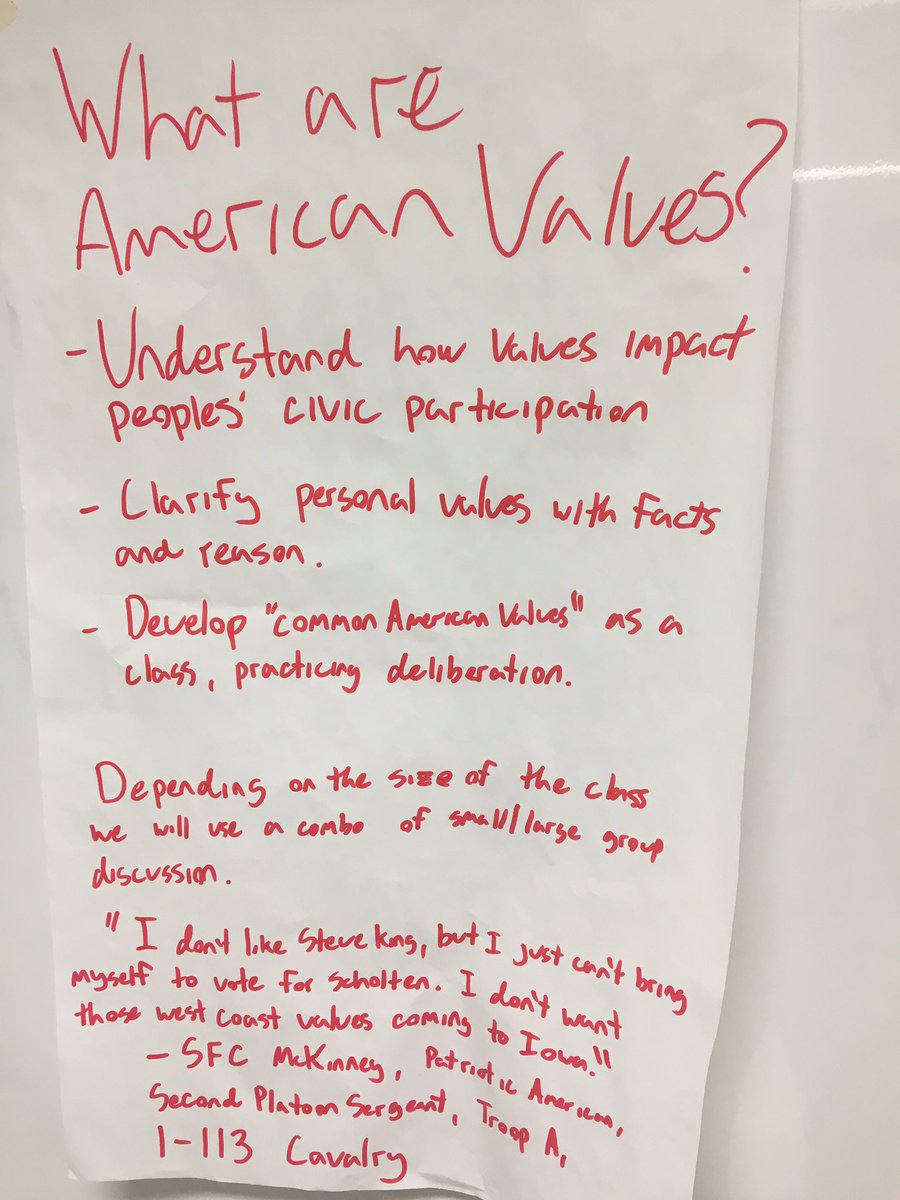 What are
American Values?
- Understand how values impact
peoples' civic participation
- Clarify personal values with facts
and reason.
- Develop "common American Values" as a
class, practicing deliberation.
Depending on the size of the class
we will use a combo of small/large group
discussion.
"I don't like Steve King, but I just can't bring
myself to vote for Scholten. I don't want
those west coast values coming to Iowa."
- SFC McKinney, Patriotic American,
Second Platoon Sergeant, Troop A,
1-113 Cavalry